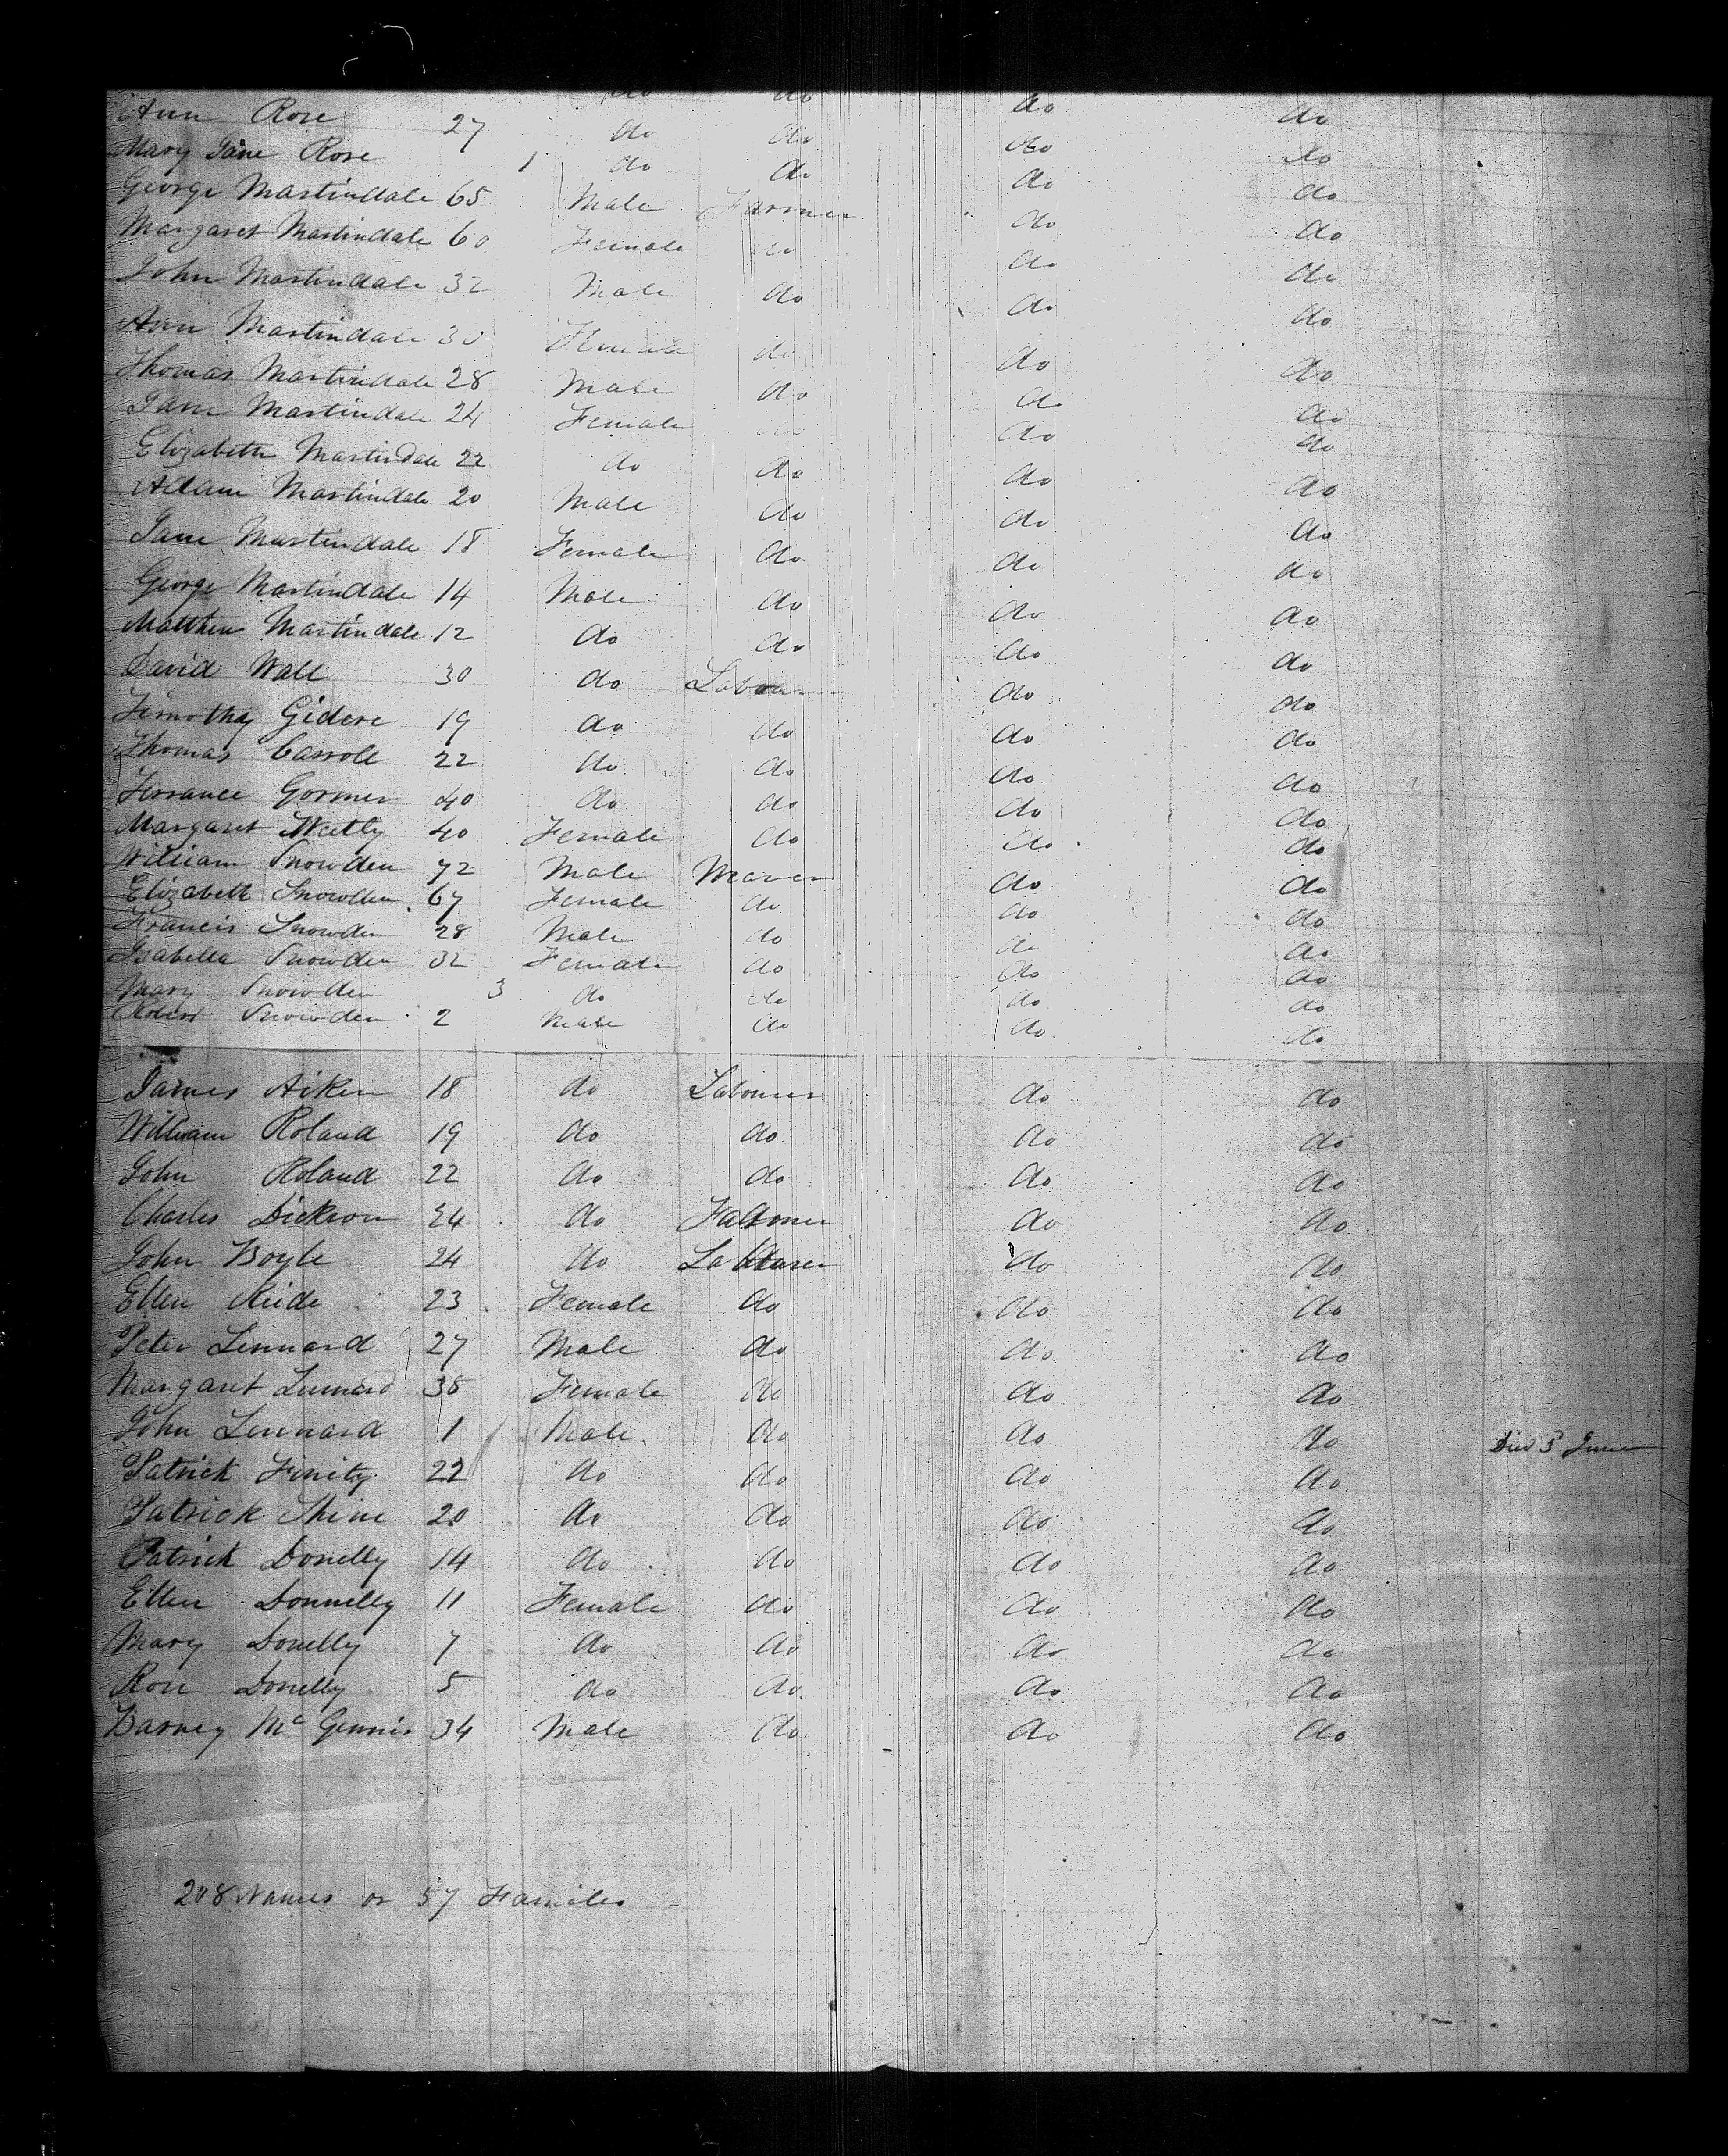 do do do
Ann Rose 27 do do do do
Mary Jane Rose 1 do do do do
George Martindale 65 Male Farmer do do
Margaret Martindale 60 Female do do do
John Martindale 32 Male do do do
Ann Martindale 30 Female do do do
Thomas Martindale 28 Male do do do
Jane Martindale 24 Female do do do
Elizabeth Martindale 22 do do do do
Adam Martindale 20 Male do do do
Jane Martindale 18 Female do do do
George Martindale 14 Male do do do
Matthew Martindale 12 do do do do
David Wall 30 do Labourer do do
Timothy Gidere 19 do do do do
Thomas Carroll 22 do do do do
Terrance Gormer 40 do do do do
Margaret 40 Female do do do
William Snowden 72 Male do do
Elizabeth Snowden 67 Female do do do
Francis Snowden 28 Male do do do
Isabella Snowden 32 Female do do do
Mary Snowden 3 do do do do
Robert Snowden 2 Male do do do
James Aiken 18 do Labourer do do
William Roland 19 do do do do
John Roland 22 do do do do
Charles Dickson 24 do Farmer do do
John Boyle 24 do Labourer do do
Ellen Reide 23 Female do do do
Peter Lennard 27 Male do do do
Margaret Lennard 38 Female do do do
John Lennard 1 Male do do do Died 3 June
Patrick Finity 22 do do do do
Patrick Shine 20 do do do do
Patrick Donelly 14 do do do do
Ellen Donnelly 11 Female do do do
Mary Donelly 7 do do do do
Rose Donelly 5 do do do do
Barney Mc Gennis 34 Male do do do
208 Names or 57 Families